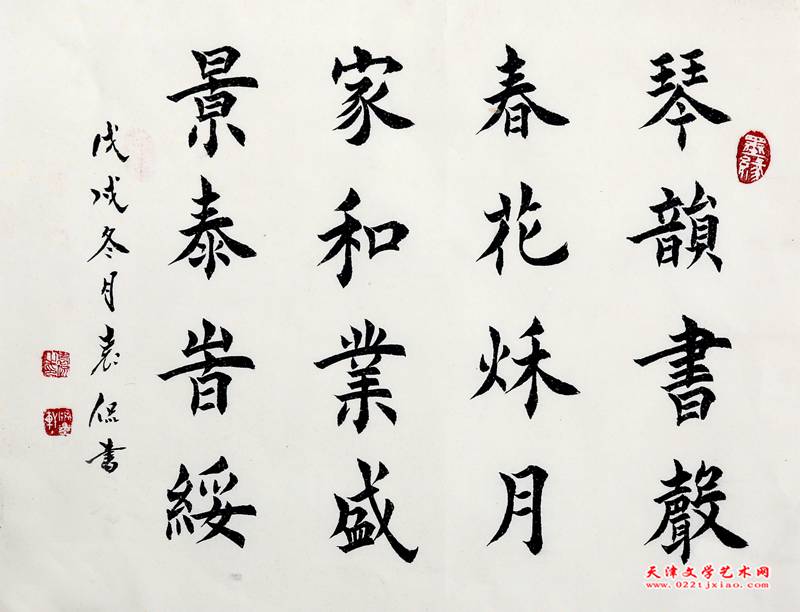 琴韻書聲
春花秌月
家和業盛
景泰旹綏
戊戌冬月袁侃書
墨緣
天津文学艺术网
www.022tjxiao.com